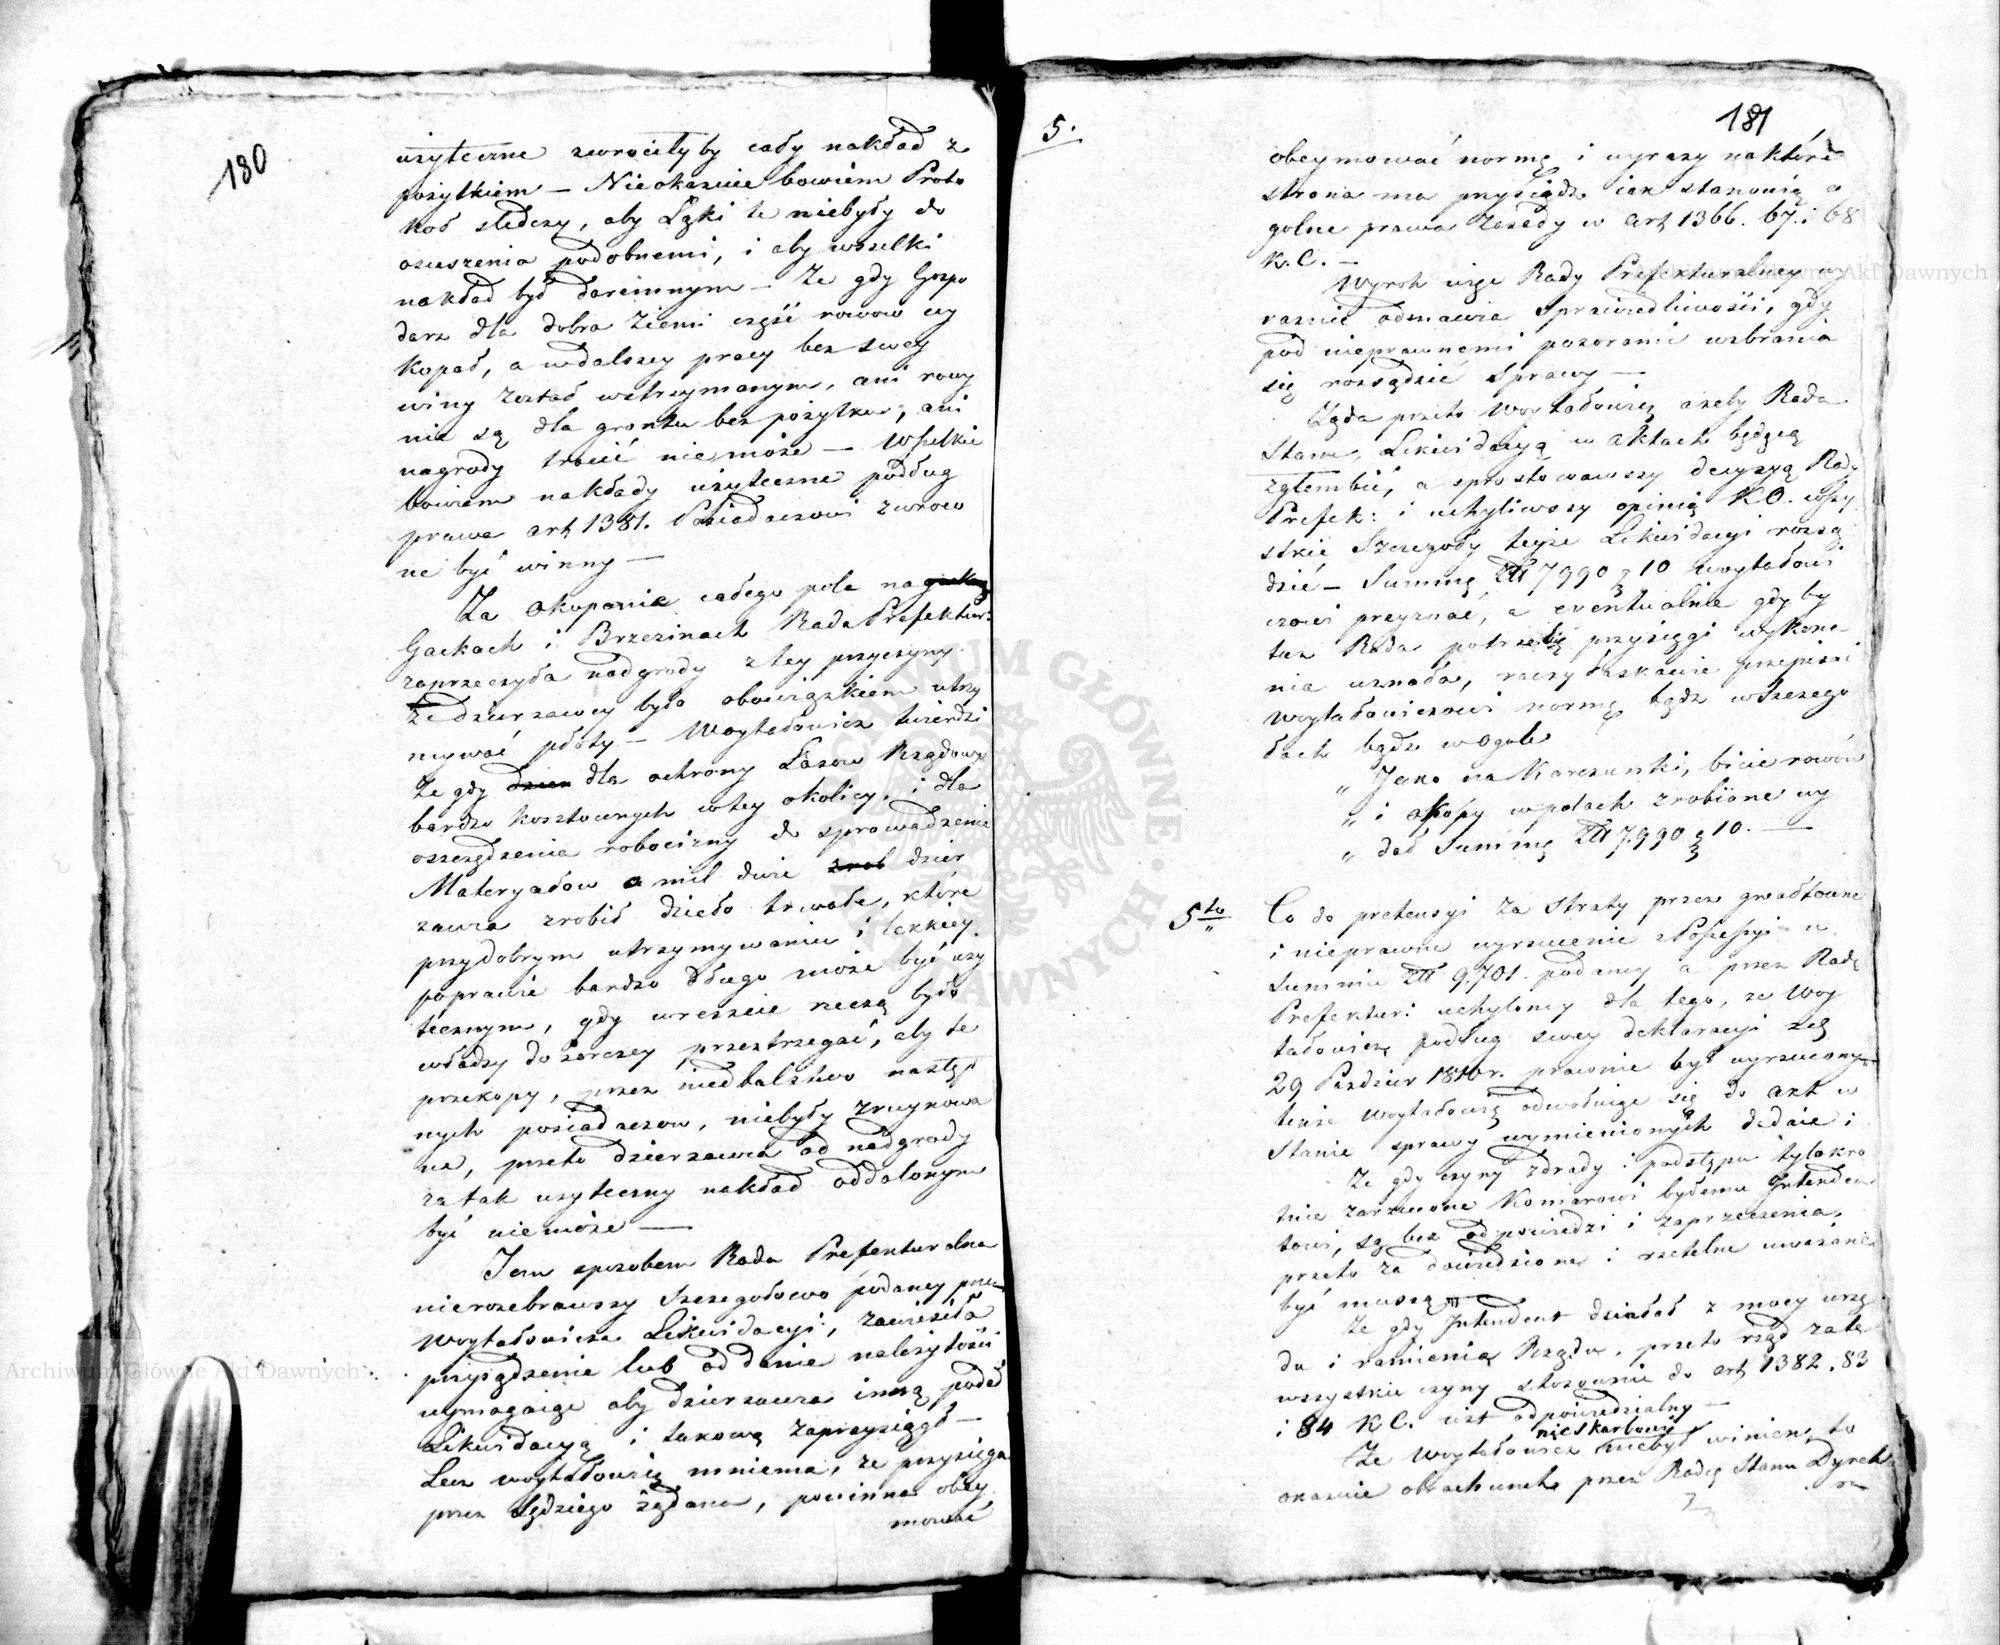 180
użyteczne zwrociłyby cały nakład z
pożytkiem — Nieokazuie bowiem Proto
koł sledczy, aby Łąki te niebyły do
osuszenia podobnemi, i aby wszelki
nakład był daremnym — Że gdy Gospo
darz dla dobra Ziemi część rowow wy
kopał, a wdalszey pracy bez swey
winy został wstrzymanym, ani rowy
nie są dla gruntu bez pożytku, ani
nagrody tracić niemoże — Wszelkie
bowiem nakłady użyteczne podług
prawa art 1381. Posiadaczowi zwroco
ne być winny —
Za Okopanie całego pola na
Gackach i Brzezinach Rada Prefektur:
zaprzeczyła nadgrody z tey przyczyny
że dzierzawcy było obowiązkiem utrzy
mywać płoty — Woytałowicz twierdzi
że gdy dla ochrony Lasow Rządowy
bardzo kosztownych wtey okolicy, i dla
oszczędzenia robocizny do sprowadzenia
Materyałow o mil dwie dzier
zawca zrobił dzieło trwałe, które
przydobrym utrzymywaniu i lekkiey
poprawie bardzo długo może być uży
tecznym, gdy wreszcie rzeczą było
władzy dozorczey przestrzegać, aby te
przekopy, przez niedbalstwo następ
nych posiadaczow, niebyły zruynowa
ne, przeto dzierzawca od nadgrody
za tak użyteczny nakład oddalonym
być niemoże —
Tem sposobem Rada Prefekturalna
nierozebrawszy szczegołowo podaney przez
Woytałowicza Likwidacyi, zawiesiła
przysądzenie lub oddanie należytości
wymagaiąc aby dzierzawca inną podał
Likwidacyą i takową zaprzysiągł —
Lecz woytałowicz mniema, że przysięga
przez Sędziego żądana, powinna obey
mować
5.
181
obeymować normę i wyrazy na które
strona ma przysiądz iak stanowią o
golne prawa zasady w art 1366. 67. i 68
K. C. —
Wyrok więc Rady Prefekturalney wy
raznie odmawia Sprawiedliwości, gdy
pod nieprawnemi pozorami wzbrania
się rozsądzić Sprawy —
Żąda przeto Woytałowicz ażeby Rada
Stanu, Likwidacyą w aktach będącą
zgłembić, a sprostowawszy decyzyą Rady
Prefek: i uchyliwszy opinią K. O. wszy
stkie Szczegoły teyże Likwidacyi rozsą
dzić — Summę Złł 7990 g 10 woytałowi
czowi przyznać, a eventualnie gdy by
taż Rada potrzebę przysięgi wykona
nia uznała, raczy łaskawie przepisać
woytałowiczowi normę bądz wszczego
łach bądz wogole
„ Jako na Karczunki, bicie rowów
„ i okopy w polach zrobione wy
„ dał Summę Złł 7,990 g 10. —
5to Co do pretensyi za straty przez gwałtowne
i nieprawne wyrzucenie z Possessyi w
Summie Złł 9,701. podaney a przez Radę
Prefektur: uchyloney dla tego, że Woy
tałowicz podług swey deklaracyi zdą
29 Pazdzier 1810r. prawnie był wyrzucony —
tenże Woytałowicz odwołuiąc się do art w
Stanie sprawy wymienionych dodaie i
Że gdy czyny zdrady i podstępu tylokro
tnie zarzucone Komarowi byłemu Intenden
towi, są bez odpowiedzi i zaprzeczenia,
przeto za dowiedzione i rzetelne uważane
być muszą —
Że gdy Intendent działał z mocy urzę
du i ramienia Rządu, przeto rząd za te
wszystkie czyny stosownie do art 1382. 83
i 84 K. C. iest odpowiedzialny —
nie skarbowi
Że Woytałowicz niebył winien, to
okazuie obrachunek przez Radę Stanu Dyrek